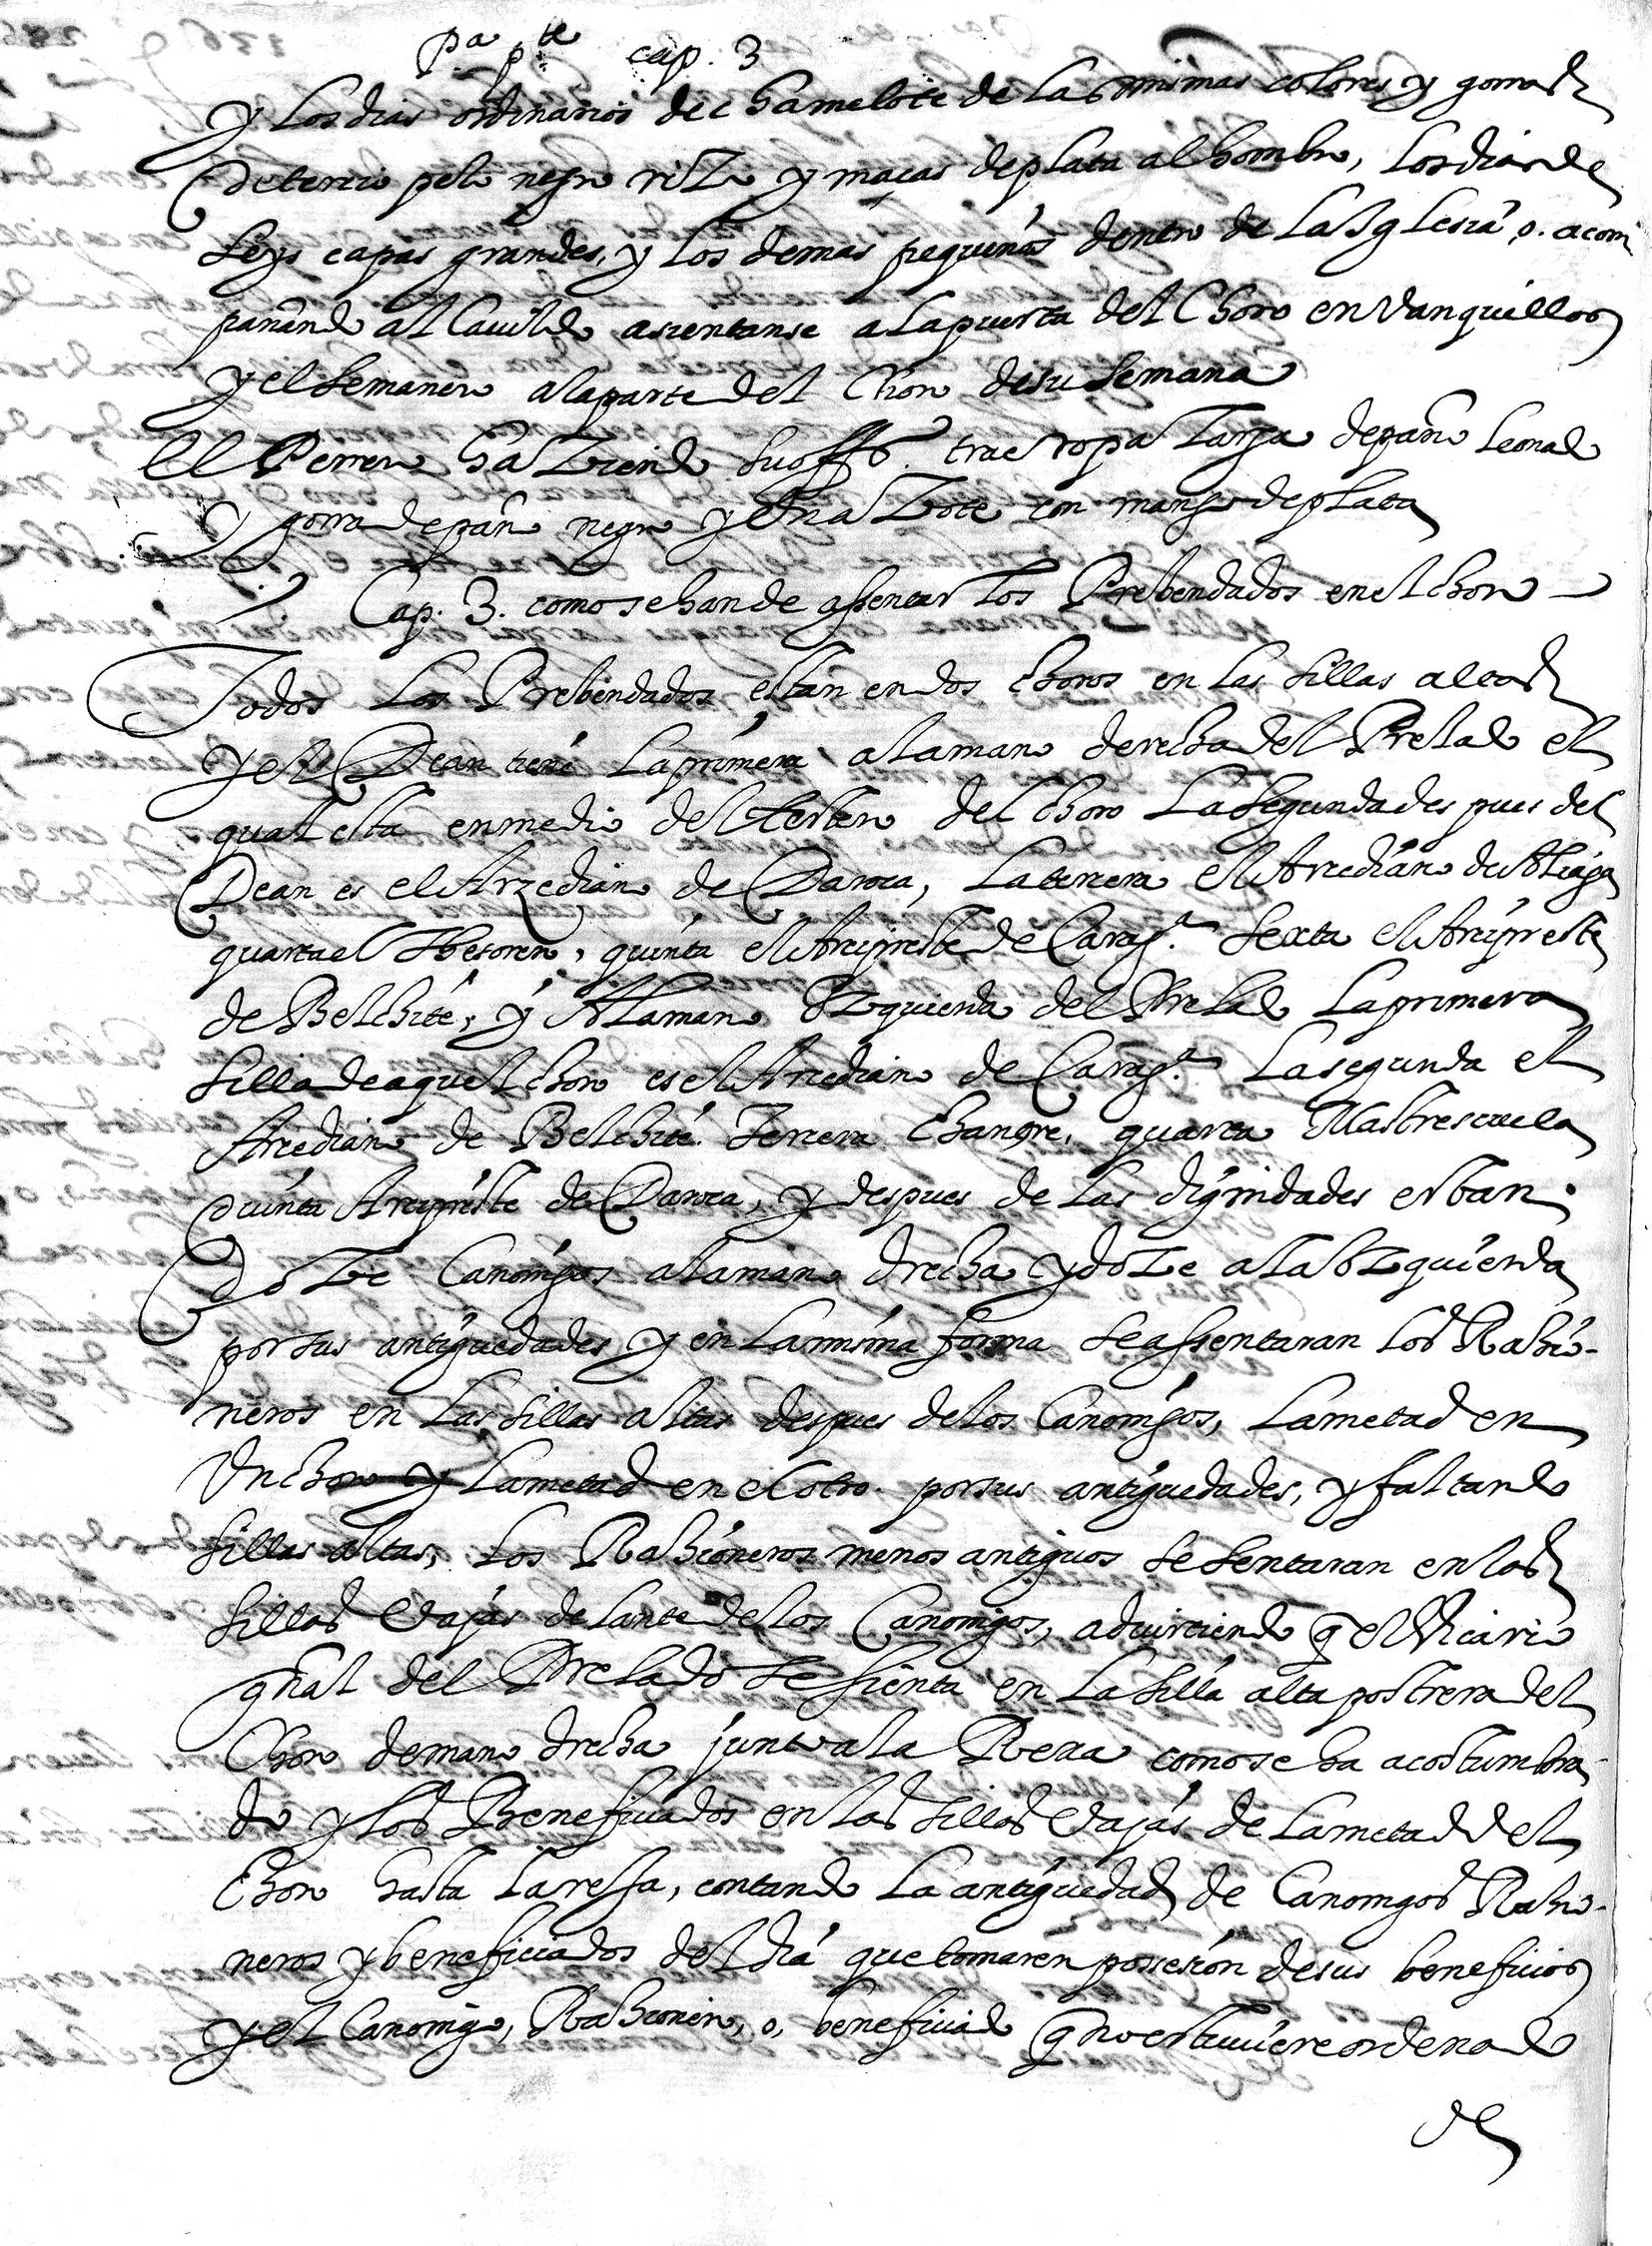 Pa pte cap. 3
y los dias ordinarios de chamelote de las mismas colores y gorras
de tercio pelo negro rizo y maças de plata al hombro, los dias de
seys capas grandes, y los demas pequeñas dentro de la Iglesia, o. acom
pañando al Cauildo asientanse a la puerta del Choro en vanquillos
y el semanero a la parte del Choro de su semana
El Perrero haziendo su offo. trae ropa larga de paño leonado
y gorra de paño negro y un azote con mango de plata
Cap. 3. como se han de assentar los Prebendados en el choro
Todos los Prebendados estan en dos choros en las sillas altas
y el Dean tiene la primera a la mano derecha del Prelado el
qual esta en medio del testero del choro la segunda despues del
Dean es el Arzediano de Daroca, la tercera el Arcediano de Aliaga
quarta el Thesorero, quinta el Arcipreste de Carag.a sexta el Arcipreste
de Belchite, y A la mano Izquierda del Prelado la primera
silla de aquel choro es el Arcediano de Carag.a La segunda el
Arcediano de Belchite. Tercera Chantre, quarta Mastrescuela
Quinta Arcipreste de Daroca, y despues de las dignidades estan.
Doze Canonigos a la mano drecha y doze a la Izquierda
por sus antiguedades y en la misma forma se assentaran los Rahio-
neros en las sillas altas despues de los Canonigos, la metad en
Un choro y la metad en el otro por sus antiguedades, y faltando
sillas altas, los Rahioneros menos antiguos se sentaran en las
sillas vajas delante de los Canonigos, aduirtiendo q el Vicario
gñal del Prelado se sienta en la silla alta postrera del
Choro de mano drecha junto a la Rexa como se ha acostumbra-
do y los Beneficiados en las sillas vajas de la metad del
Choro hasta la rexa, contando la antiguedad de Canonigos Rahio-
neros y beneficiados del dia que tomaren possesion de sus beneficios
y el Canonigo, Rahionero, o, beneficiado q no estuuiere ordenado
de